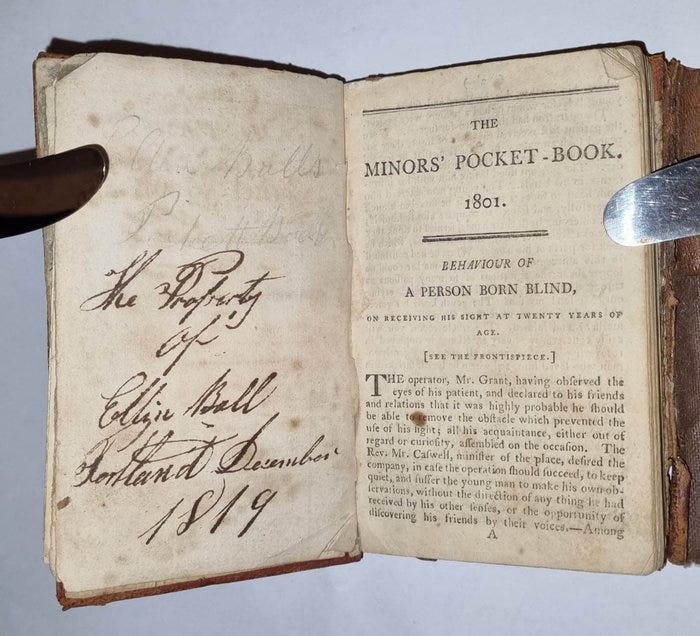 Balls
The Property
of
Ellijn Ball
Portland December
1819
THE
MINORS' POCKET-BOOK.
1801.
BEHAVIOUR OF
A PERSON BORN BLIND,
ON RECEIVING HIS SIGHT AT TWENTY YEARS OF
AGE.
[SEE THE FRONTISPIECE.]
THE operator, Mr. Grant, having obſerved the
eyes of his patient, and declared to his friends
and relations that it was highly probable he ſhould
be able to remove the obſtacle which prevented the
uſe of his ſight; all his acquaintance, either out of
regard or curioſity, aſſembled on the occaſion. The
Rev. Mr. Caſwell, miniſter of the place, deſired the
company, in caſe the operation ſhould ſucceed, to keep
quiet, and ſuffer the young man to make his own ob-
ſervations, without the direction of any thing he had
received by his other ſenſes, or the opportunity of
diſcovering his friends by their voices.—Among
A